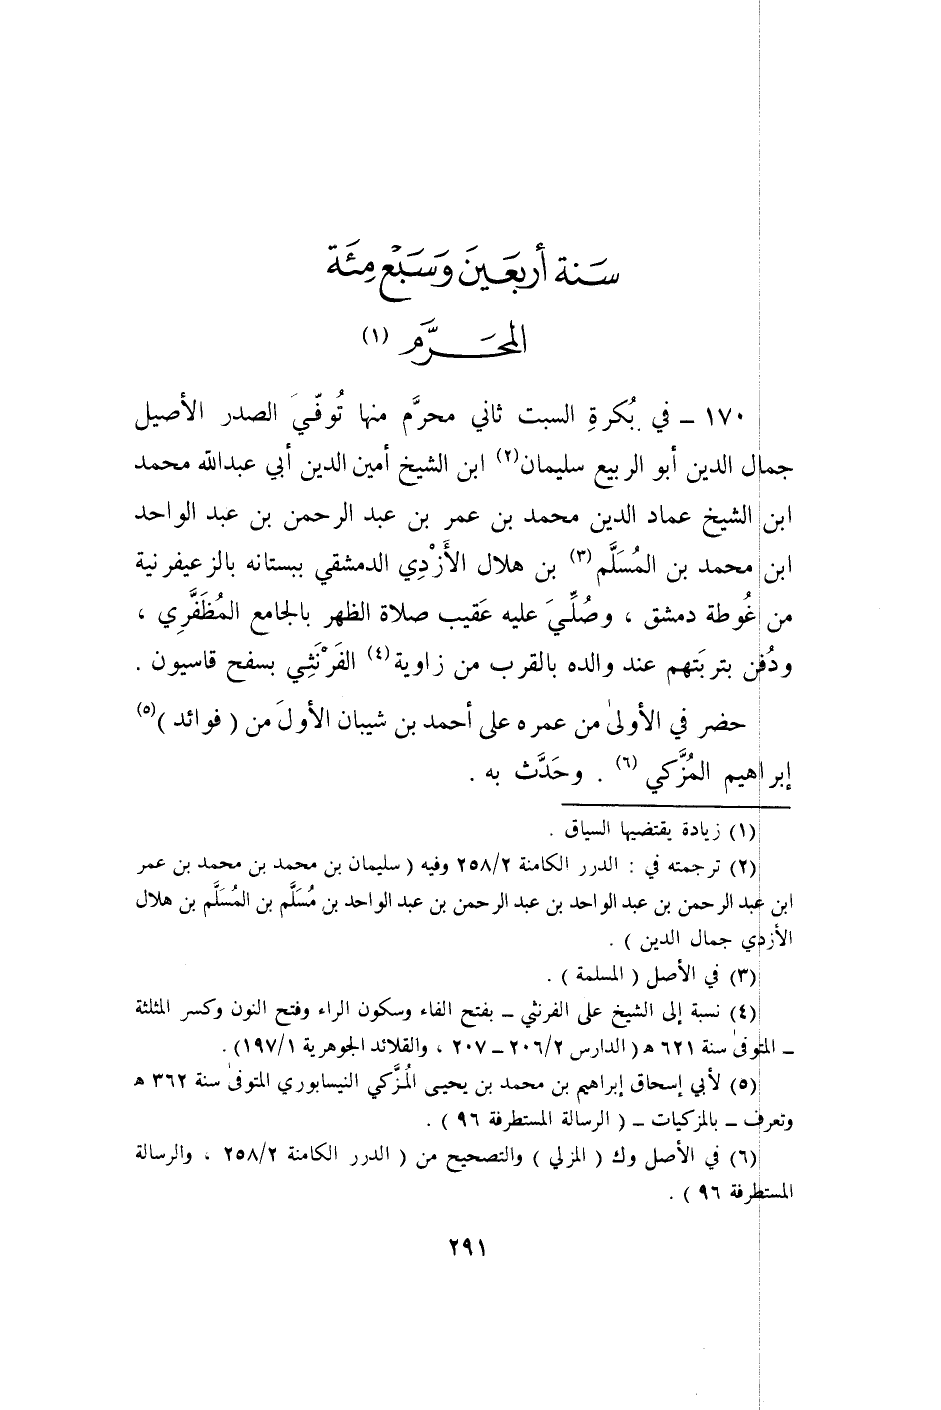 سنة أربعين وسبع مئة
المحرَّم (١)
١٧٠ ـ في بُكرةِ السبت ثاني محرَّم منها تُوفّيَ الصدر الأصيل
جمال الدين أبو الربيع سليمان(٢) ابن الشيخ أمين الدين أبي عبدالله محمد
ابن الشيخ عماد الدين محمد بن عمر بن عبد الرحمن بن عبد الواحد
ابن محمد بن المُسَلَّم (٣) بن هلال الأَزْدِي الدمشقي ببستانه بالزعيفرنية
من غُوطة دمشق ، وصُلِّيَ عليه عَقيب صلاة الظهر بالجامع المُظَفَّرِي ،
ودُفن بتربَتهم عند والده بالقرب من زاوية(٤) الفَرْنَثِي بسفح قاسيون .
حضر في الأولىٰ من عمره على أحمد بن شيبان الأولَ من ( فوائد )(٥)
إبراهيم المُزَّكي (٦) . وحَدَّث به .
(١) زيادة يقتضيها السياق .
(٢) ترجمته في : الدرر الكامنة ٢٥٨/٢ وفيه ( سليمان بن محمد بن محمد بن عمر
ابن عبد الرحمن بن عبد الواحد بن عبد الرحمن بن عبد الواحد بن مُسَلَّم بن المُسَلَّم بن هلال
الأزدي جمال الدين ) .
(٣) في الأصل ( المسلمة ) .
(٤) نسبة إلى الشيخ علي الفرنثي ـ بفتح الفاء وسكون الراء وفتح النون وكسر المثلثة
ـ المتوفىٰ سنة ٦٢١ ه ( الدارس ٢٠٦/٢ ـ ٢٠٧ ، والقلائد الجوهرية ١٩٧/١) .
(٥) لأبي إسحاق إبراهيم بن محمد بن يحيى المُزَّكي النيسابوري المتوفىٰ سنة ٣٦٢ ه
وتعرف ـ بالمزكيات ـ ( الرسالة المستطرفة ٩٦ ) .
(٦) في الأصل وك ( المزلي ) والتصحيح من ( الدرر الكامنة ٢٥٨/٢ ، والرسالة
المستطرفة ٩٦ ) .
٢٩١